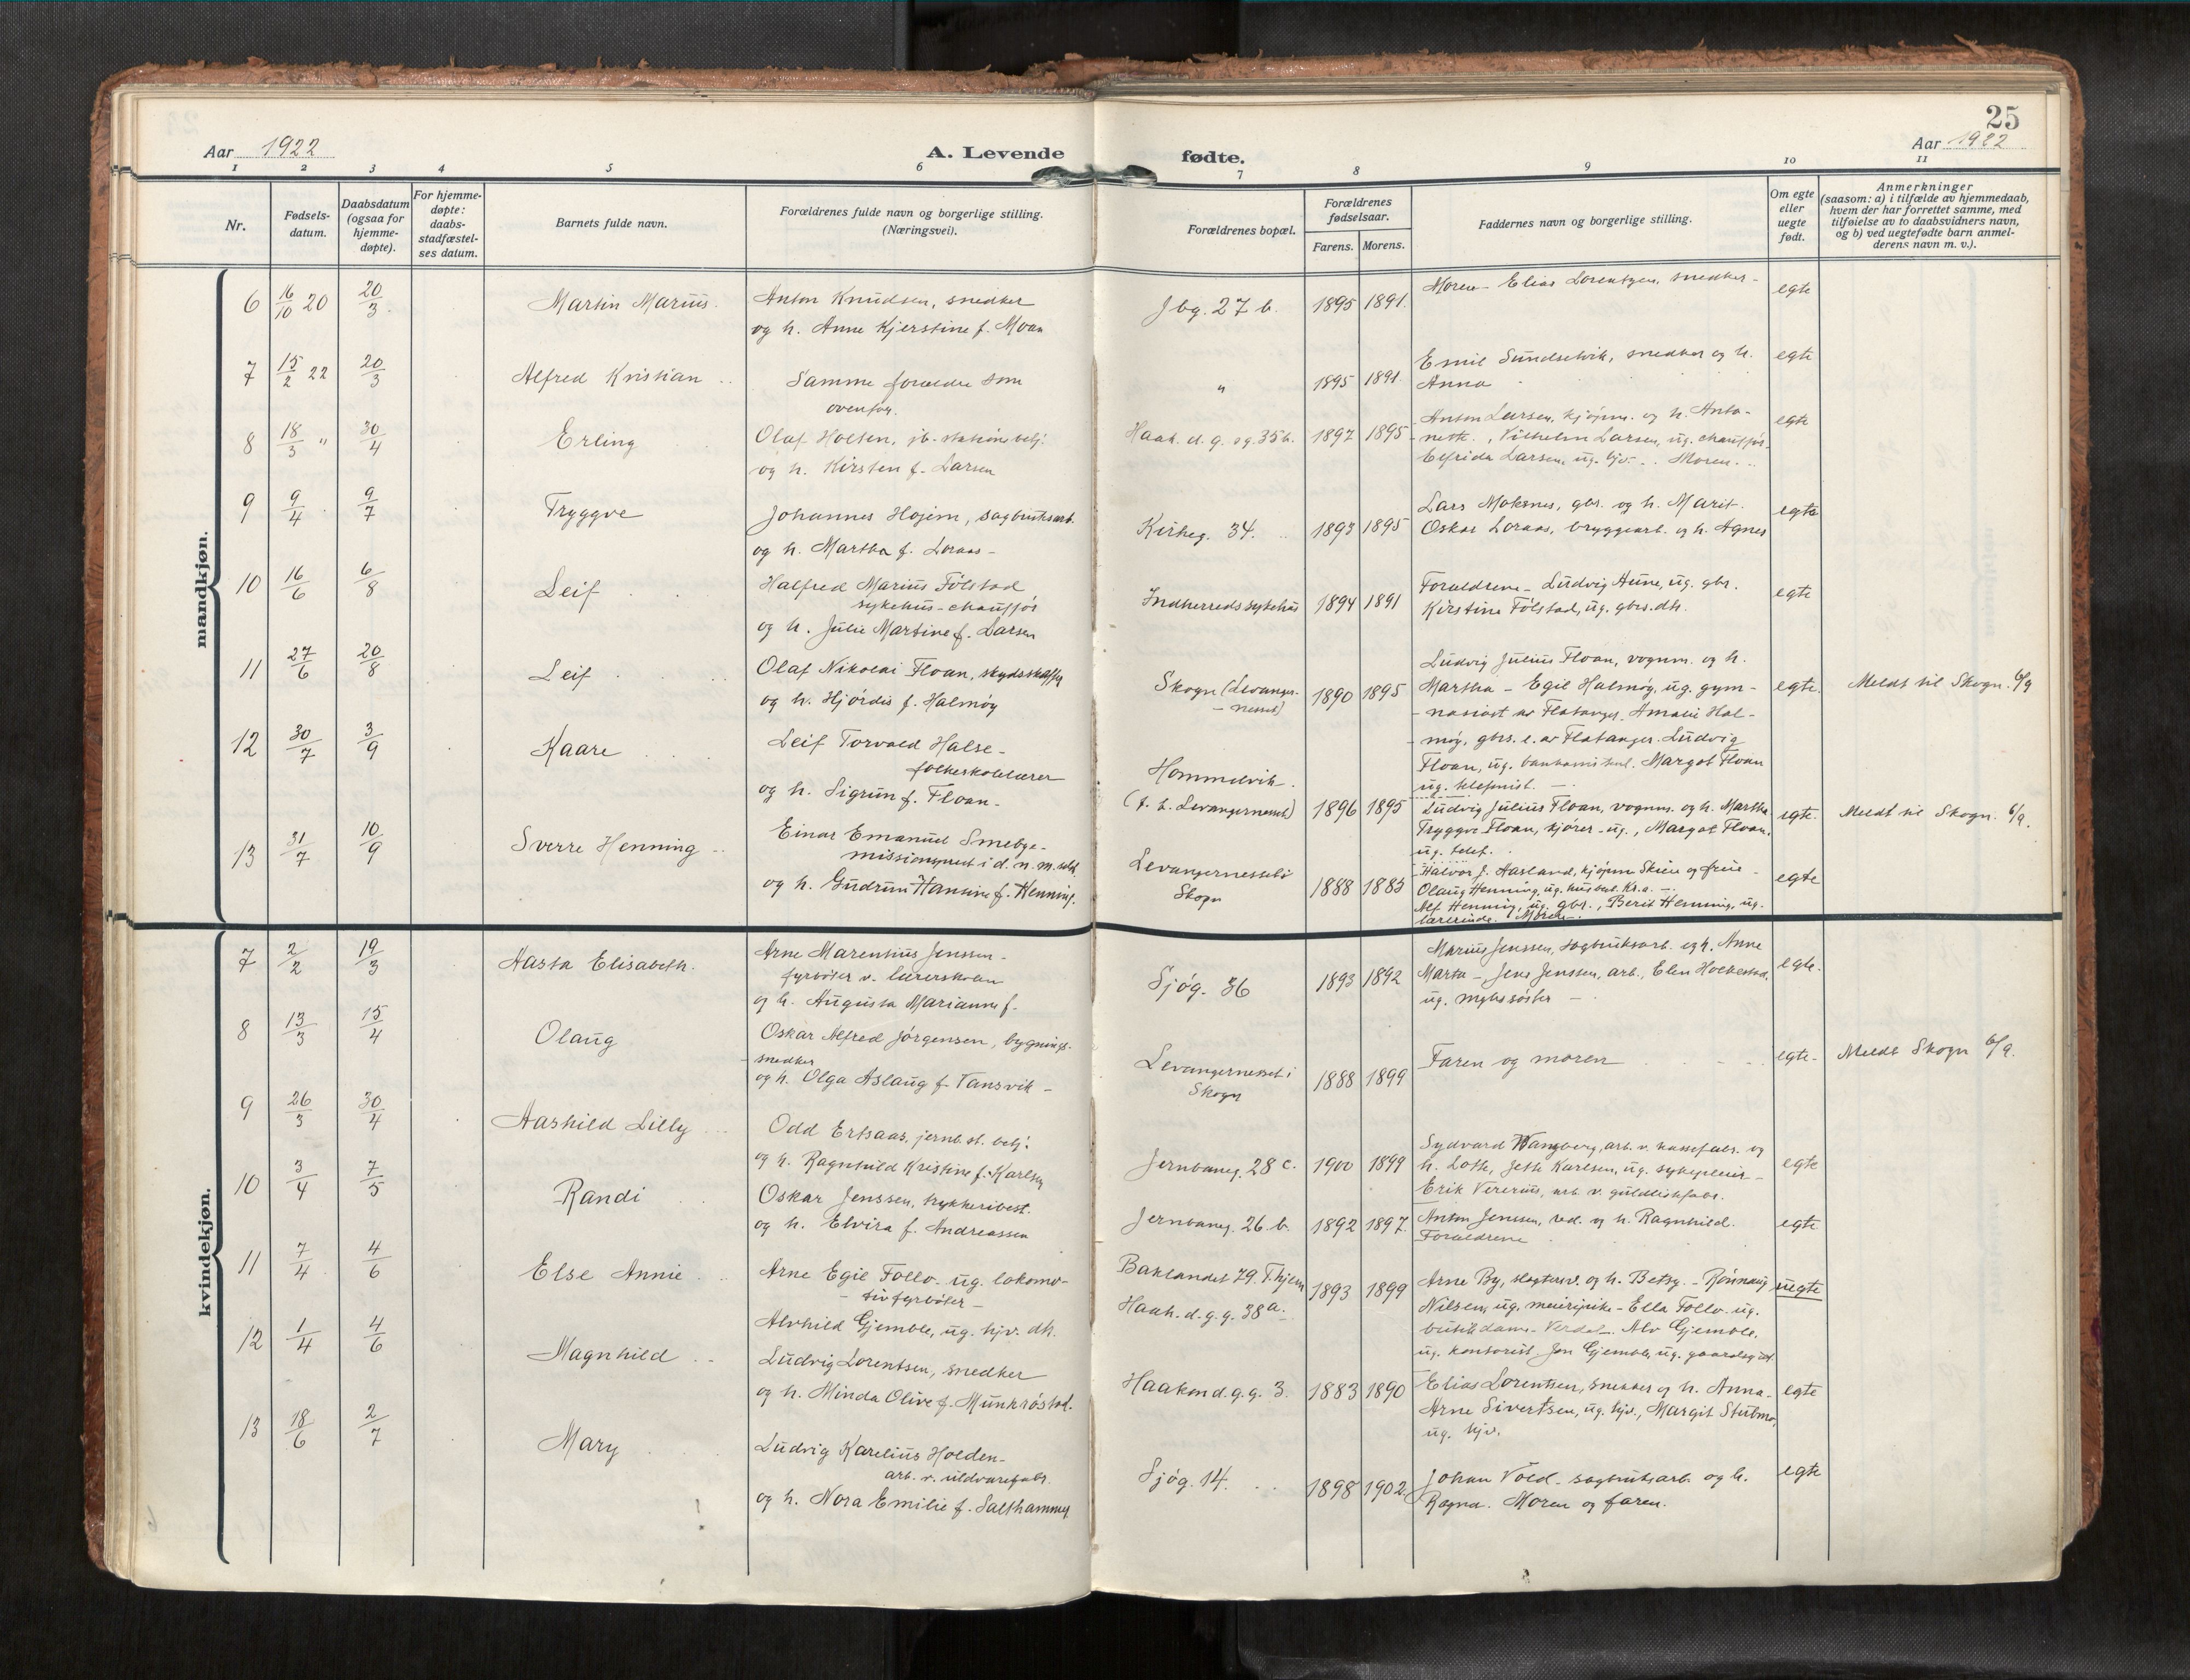 25
Aar 1922
A. Levende
fødte.
Aar 1922
1 2 3 4 5 6 7 8 9 10 11
Nr.
Fødsels-
datum.
Daabsdatum
(ogsaa for
hjemme-
døpte).
For hjemme-
døpte:
daabs-
stadfæstel-
ses datum.
Barnets fulde navn.
Forældrenes fulde navn og borgerlige stilling.
(Næringsvei).
Forældrenes bopæl.
Forældrenes
fødselsaar.
Farens. Morens.
Faddernes navn og borgerlige stilling.
Om egte
eller
uegte
født.
Anmerkninger
(saasom: a) i tilfælde av hjemmedaab,
hvem der har forrettet samme, med
tilføielse av to daabsvidners navn,
og b) ved uegtefødte barn anmel-
derens navn m. v.).
mandkjøn.
6 16/10 20 20/3 Martin Marius
Anton Knudsen, snedker
og h. Anne Kjerstine f. Moan
Jbg. 27 b. 1895 1891.
Moren - Elias Lorentzen, snedker -
egte
7 15/2 22 20/3 Alfred Kristian
Samme forældre som
ovenfor.
" 1895 1891.
Emil Sundselvik, snedker og h.
Anna
egte
8 18/3 " 30/4 Erling
Olaf Holten, jb. stations betj.
og h. Kirsten f. Larsen
Haak. d. g. g. 35 b. 1897 1895
Anton Larsen, kjøpm. og h. Anto-
nette, Vilhelm Larsen, ug. chauffør.
Elfrida Larsen, ug. hjv. Moren
egte
9 9/4 9/7 Tryggve
Johannes Hojem, sagbruksarb.
og h. Martha f. Loraas -
Kirkeg. 34. 1893 1895
Lars Moksnes, gbr. og h. Marit.
Oskar Loraas, bryggearb. og h. Agnes
egte
10 16/6 6/8 Leif
Halfred Marius Følstad
sykehus - chauffør
og h. Julie Martine f. Larsen
Indherreds sykehus 1894 1891
Forældrene - Ludvig Aune, ug. gbr.
Kirstine Følstad, ug. gbrs. dtr.
egte
11 27/6 20/8 Leif
Olaf Nikolai Floan, skydsskaffer
og h. Hjørdis f. Halmøy
Skogn (Levanger-
- nesset) 1890 1895
Ludvig Julius Floan, vognm. og h.
Martha - Egil Halmøy, ug. gym-
- nasiast av Flatanger. Amalie Hal-
- møy, gbrs. e. av Flatanger. Ludvig
Floan, ug. Margot Floan
ug. telefonist. -
egte. Meldt til Skogn. 6/9
12 30/7 3/9 Kaare
Leif Torvald Halse -
folkeskolelærer
og h. Sigrun f. Floan -
Hommelvik.
(f. t. Levangernesset) 1896 1895
Ludvig Julius Floan, vognm. og h. Martha
Tryggve Floan, kjører - ug., Margot Floan,
ug. telef.
egte. Meldt til Skogn. 6/9.
13 31/7 10/9 Sverre Henning
Einar Emanuel Smebye -
missionsprest i d. n. m. selsk.
og h. Gudrun Hansine f. Henning.
Levangernesset i
Skogn 1888 1885
Halvor J. Aasland, kjøpm. Skien og frue -
Olaug Henning, ug. husbest. Kr.a. -
Alf Henning, ug. gbr., Berit Henning, ug.
lærerinde. Moren -
egte
kvindekjøn.
7 2/2 19/3 Aasta Elisabeth.
Arne Marentius Jenssen -
fyrbøter v. lærerskolen
og h. Augusta Marianne f.
Sjøg. 36 1893 1892
Marius Jenssen, sagbruksarb. og h. Anne
Marta - Jens Jenssen, arb.
egte.
8 13/3 15/4 Olaug
Oskar Alfred Jørgensen, bygnings-
- snedker
og h. Olga Aslaug f. Tansvik -
Levangernesset i
Skogn 1888 1899
Faren og moren
egte. Meldt Skogn 6/9.
9 26/3 30/4 Aashild Lilly
Odd Ertsaas, jernb. st. betj.
og h. Ragnhild Kristine f. Karlsen
Jernbaneg. 28 c. 1900 1899
Sydvard Wangberg, arb. v. kassefabr. og
h. Lotte, Jette Karlsen, ug. sykepleier -
Erik Vererius, arb. v. guldlistfabr.
egte
10 3/4 7/5 Randi
Oskar Jenssen, trykkeribest.
og h. Elvira f. Andreassen
Jernbaneg. 26 b. 1892 1897.
Anton Jenssen, red. og h. Ragnhild.
Forældrene
egte
11 7/4 4/6 Else Annie
Arne Egil Follo - ug. lokomo-
- tivfyrbøter -
Alvhild Gjemble, ug. hjv. dtr.
Baklandet 79. T.hjem
Haak. d. g. g. 38 a. 1893 1899
Arne By, slagterv. og h. Betsy. - Rønnaug
Nilsen, ug. meieripike - Ella Follo - ug.
butikdame - Verdal. Alv Gjemble,
ug. kontorist. Jon Gjemble, ug. gaardsgut.
uegte
12 1/4 4/6 Magnhild
Ludvig Lorentsen, snedker
og h. Minda Olive f. Munkrøstad.
Haakon d. g. g. 3. 1883 1890
Elias Lorentsen, snekker og h. Anna -
Arne Sivertsen, ug. hjv., Margit Stubmo,
ug. hjv.
egte
13 18/6 2/7 Mary
Ludvig Karelius Holden -
arb. v. uldvarefabr.
og h. Nora Emilie f. Salthammer
Sjøg. 14. 1898 1902.
Johan Vold - sagbruksarb. og h.
Ragna. Moren og faren.
egte